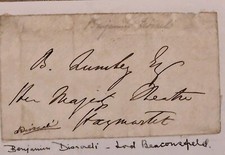 B. Lumley Esq
Her Majesty's Theatre
Haymarket
Disraeli
Benjamin Disraeli - Lord Beaconsfield.